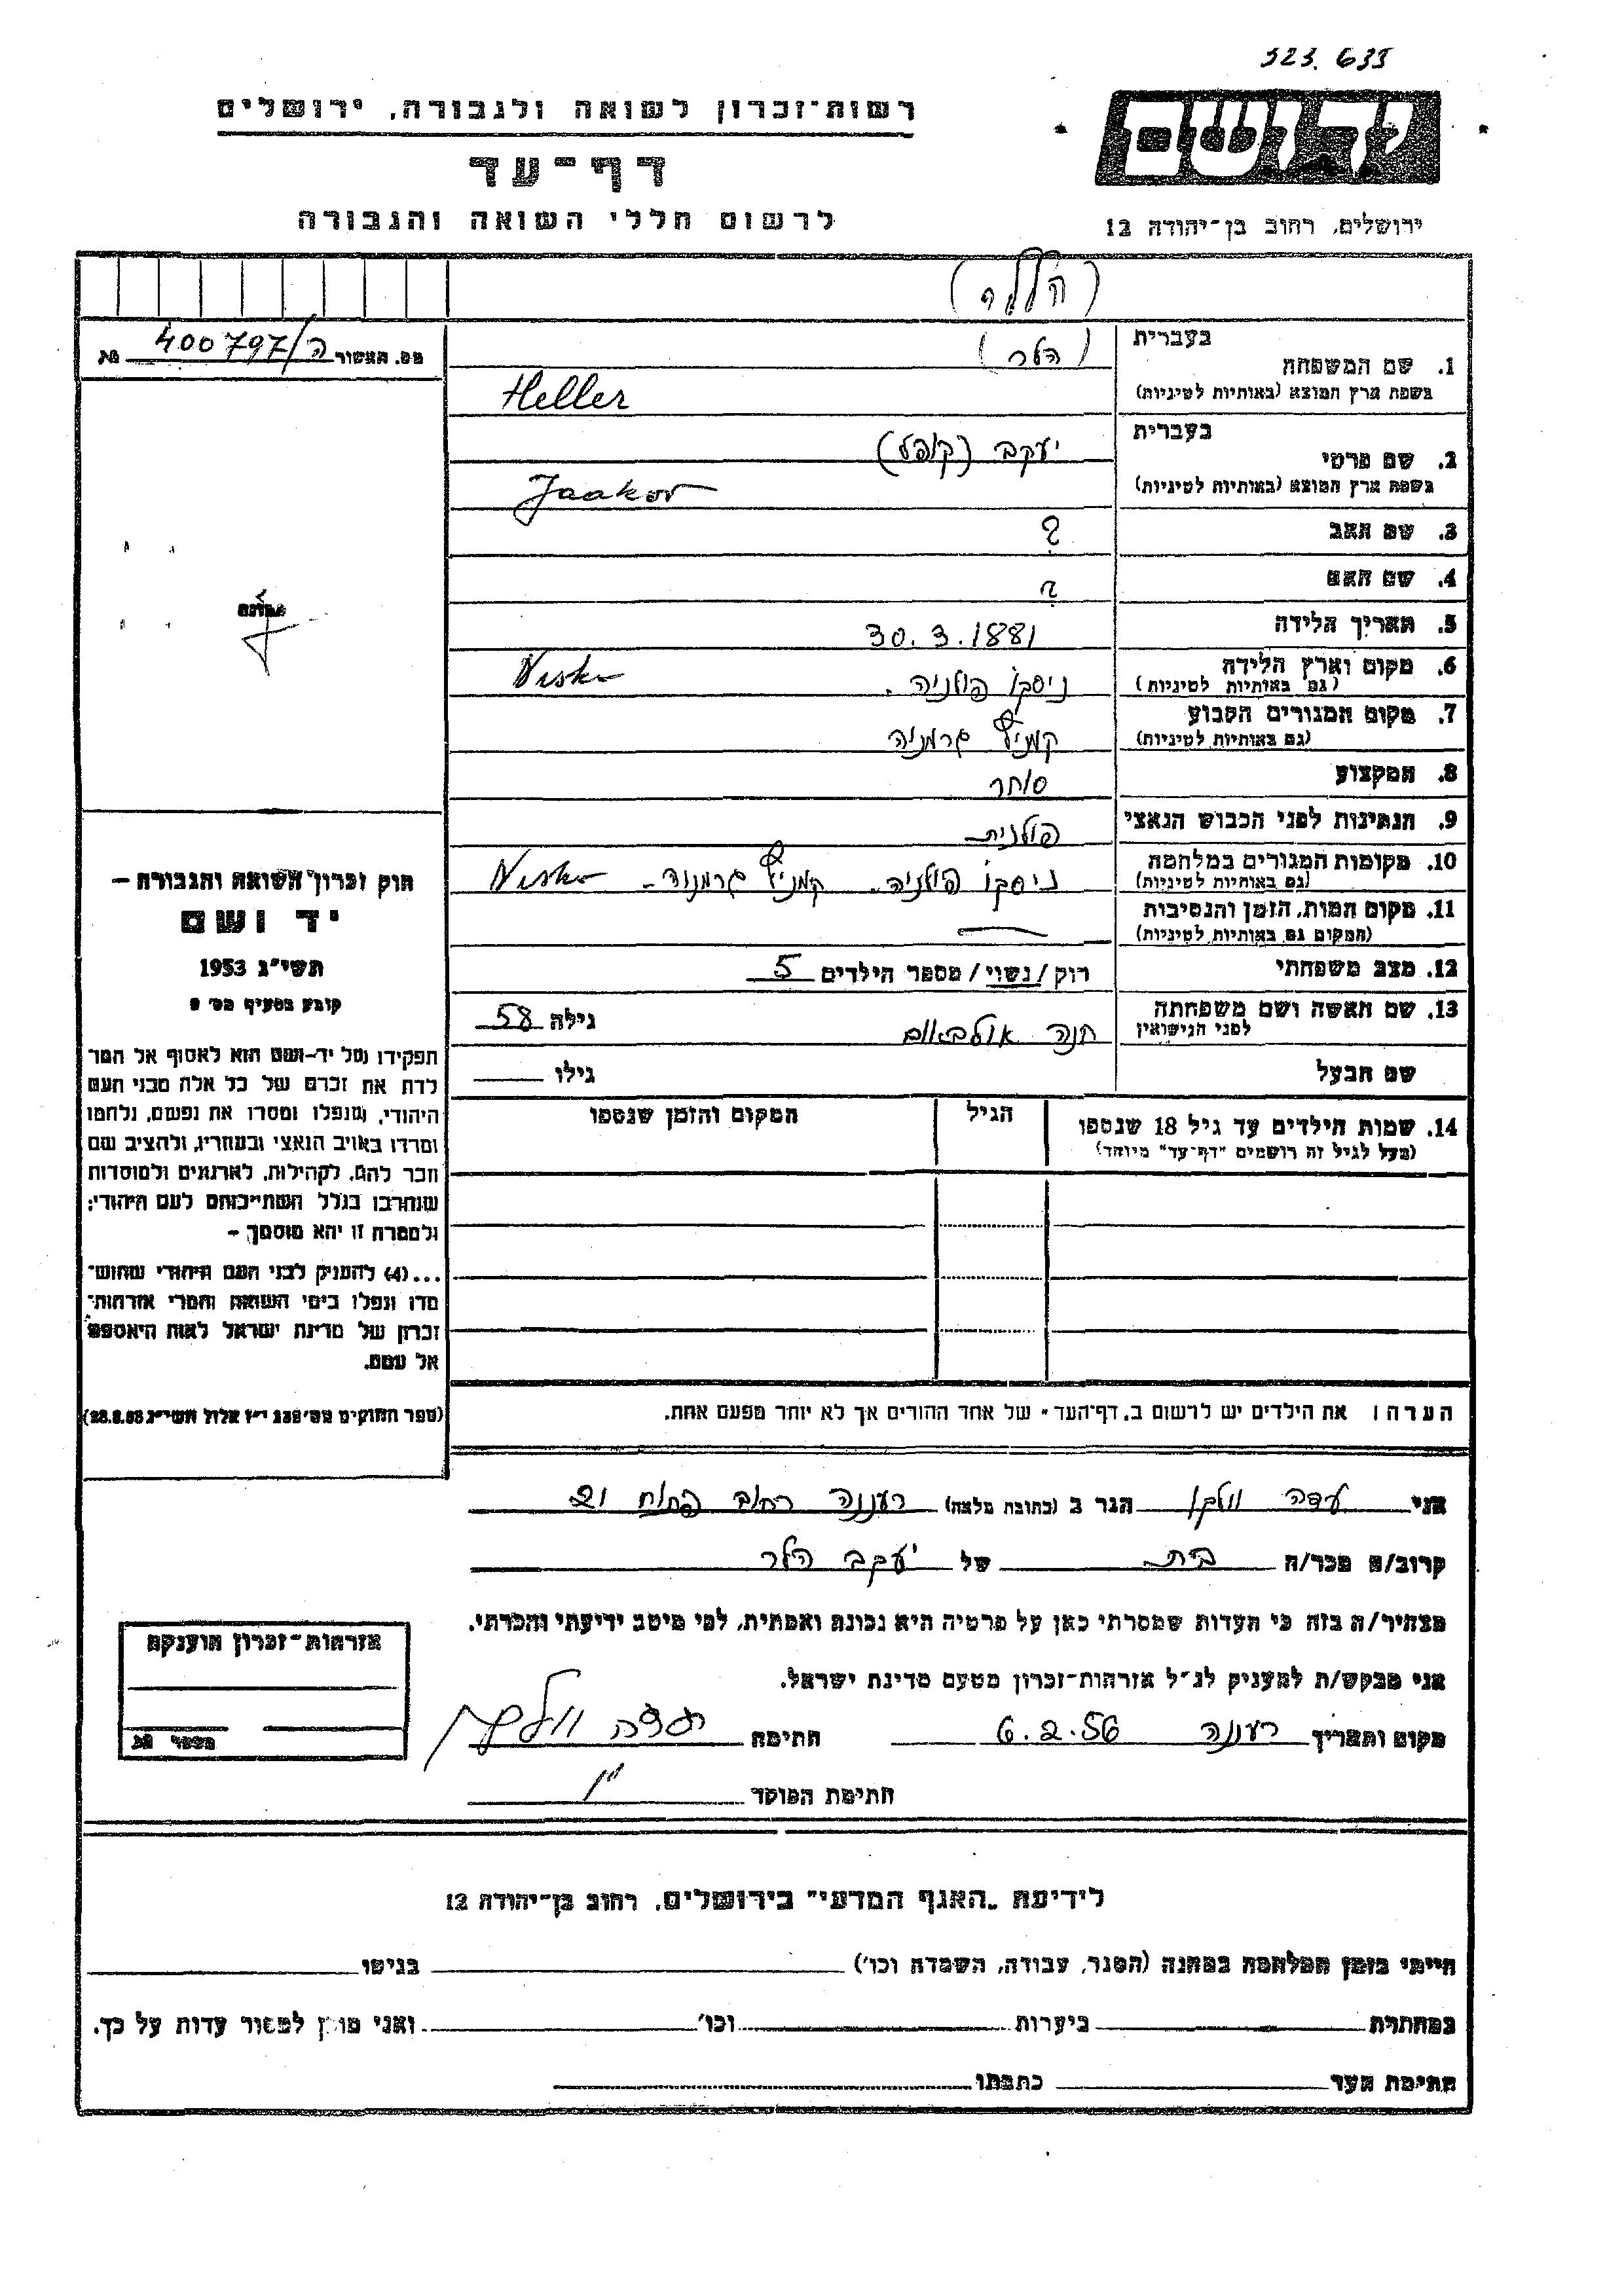 523.633
ידושם
רשות-זכרון לשואה ולגבורה, ירושלים
דף-עד
לרשום חללי השואה והגבורה
ירושלים, רחוב בן-יהודה 12
בעברית
(הלר)
1. שם המשפחה
בשפת ארץ המוצא (באותיות לטיניות)
Heller
מס. האשור ה/400797
בעברית
יעקב (קופל)
2. שם פרטי
בשפת ארץ המוצא (באותיות לטיניות)
Jaakov
3. שם האב ?
4. שם האם ?
5. תאריך הלידה 30.3.1881
6. מקום וארץ הלידה
(גם באותיות לטיניות)
ניסקו פולניה. Nisko
7. מקום המגורים הקבוע
(גם באותיות לטיניות)
קמניץ גרמניה
8. המקצוע סוחר
9. הנתינות לפני הכבוש הנאצי פולנית
10. מקומות המגורים במלחמה
(גם באותיות לטיניות)
ניסקו פולניה. קמניץ גרמניה- Nisko
11. מקום המות, הזמן והנסיבות
(המקום גם באותיות לטיניות)
12. מצב משפחתי רוק/נשוי/ מספר הילדים 5
13. שם האשה ושם משפחתה
לפני הנישואין
חנה אולבאום גילה 58
שם הבעל גילו
14. שמות הילדים עד גיל 18 שנספו
(מעל לגיל זה רושמים "דף-עד" מיוחד)
הגיל
המקום והזמן שנספו
הערה: את הילדים יש לרשום ב"דף-העד" של אחד ההורים אך לא יותר מפעם אחת.
חוק זכרון השואה והגבורה –
יד ושם
תשי"ג 1953
קובע בסעיף מס׳ 2
תפקידו של יד-ושם הוא לאסוף אל המו־
לדת את זכרם של כל אלה מבני העם
היהודי, שנפלו ומסרו את נפשם, נלחמו
ומרדו באויב הנאצי ובעוזריו, ולהציב שם
וזכר להם, לקהילות, לארגונים ולמוסדות
שנחרבו בגלל השתייכותם לעם היהודי;
ולמטרה זו יהא מוסמך –
...(4) להעניק לבני העם היהודי שהוש־
מדו ונפלו בימי השואה והמרי אזרחות־
זכרון של מדינת ישראל לאות היאספם
אל עמם.
(ספר החוקים מס׳ 132 י"ז אלול תשי"ג 28.8.53)
אני עדה וולקן הגר ב (כתובת מלאה) רעננה רחוב פתוח 21
קרוב/ה מכר/ה בית של יעקב הלר
מצהיר/ה בזה כי העדות שמסרתי כאן על פרטיה היא נכונה ואמתית, לפי מיטב ידיעתי והכרתי.
אני מבקש/ת להעניק לנ"ל אזרחות-זכרון מטעם מדינת ישראל.
מקום ותאריך רעננה 6.2.56 חתימה עדה וולקן
חתימת הפוקד
אזרחות-זכרון הוענקה
לידיעת "האגף המדעי" בירושלים, רחוב בן-יהודה 12
הייתי בזמן המלחמה במחנה (הסגר, עבודה, השמדה וכו׳) בגיטו
במחתרת ביערות וכו׳ ואני מוכן למסור עדות על כך.
חתימת העד כתבתו